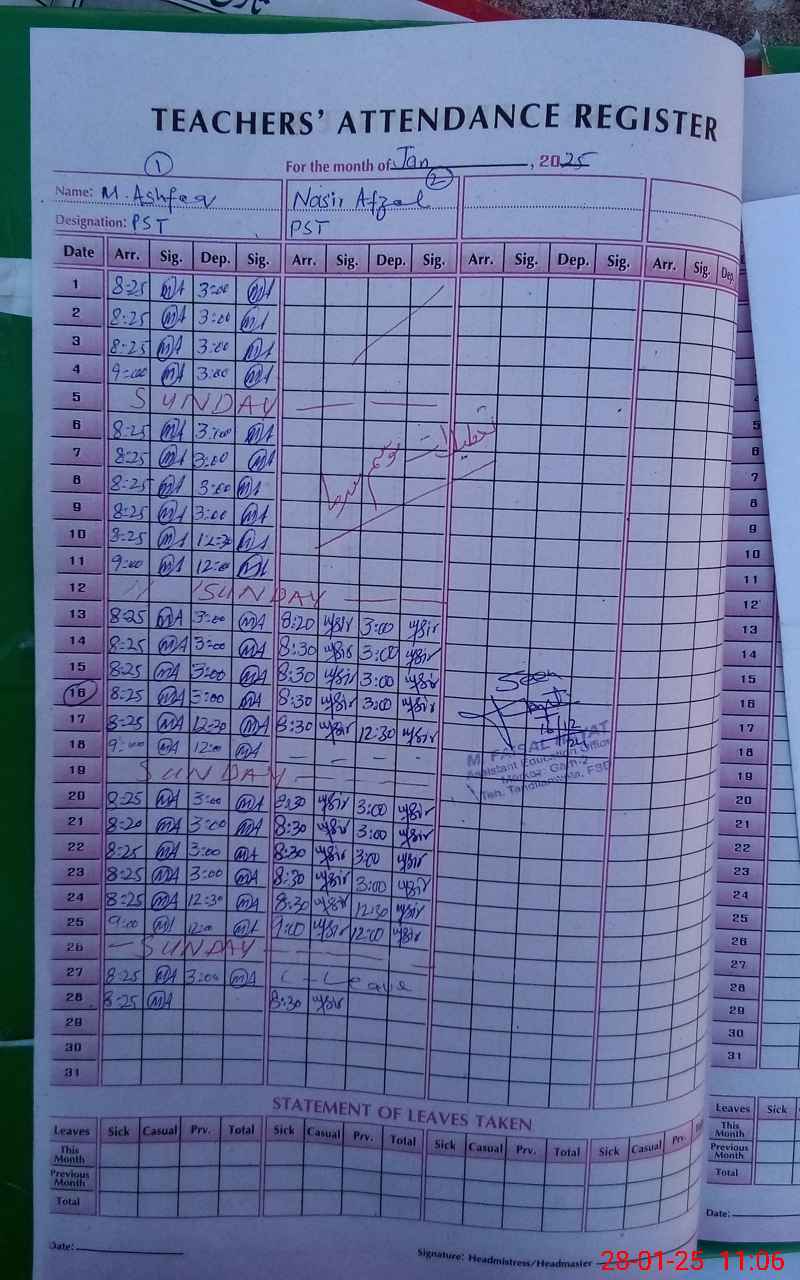 TEACHERS' ATTENDANCE REGISTER
① For the month of Jan, 2025
Name: M. Ashfaq Nasir Afzal ②
Designation: PST PST
Date Arr. Sig. Dep. Sig. Arr. Sig. Dep. Sig. Arr. Sig. Dep. Sig. Arr. Sig. Dep.
1 8:25 MA 3:00 MA
2 8:25 MA 3:00 MA
3 8:25 MA 3:00 MA
4 9:00 MA 3:00 MA
5 SUNDAY
6 8:25 MA 3:00 MA
تعطیلات موسم سرما
7 8:25 MA 3:00 MA
8 8:25 MA 3:00 MA
9 8:25 MA 3:00 MA
10 8:25 MA 12:30 MA
11 9:00 MA 12:00 MA
12 SUNDAY
13 8:25 MA 3:00 MA 8:20 3:00
14 8:25 MA 3:00 MA 8:30 3:00
15 8:25 MA 3:00 MA 8:30 3:00
16 8:25 MA 3:00 MA 8:30 3:00
Seen
17 8:25 MA 12:30 MA 8:30 12:30
18 9:00 MA 12:00 MA
Assistant Education Officer
Teh. Tandlianwala, FSD
19 SUNDAY
20 8:25 MA 3:00 MA 8:30 3:00
21 8:20 MA 3:00 MA 8:30 3:00
22 8:25 MA 3:00 MA 8:30 3:00
23 8:25 MA 3:00 MA 8:30 3:00
24 8:25 MA 12:30 MA 8:30 12:30
25 9:00 MA 12:00 MA 9:00 12:00
26 SUNDAY
27 8:25 MA 3:00 MA C-Leave
28 8:25 MA 8:30
29
30
31
STATEMENT OF LEAVES TAKEN
Leaves Sick Casual Prv. Total Sick Casual Prv. Total Sick Casual Prv. Total Sick Casual Prv.
This Month
Previous Month
Total
Date:
Signature: Headmistress/Headmaster
5
6
7
8
9
10
11
12
13
14
15
16
17
18
19
20
21
22
23
24
25
26
27
28
29
30
31
Leaves Sick
This Month
Previous Month
Total
Date:
28-01-25 11:06